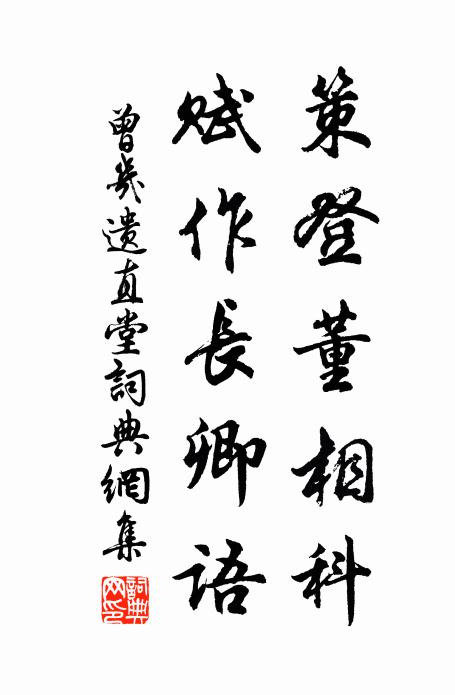 策登董相科
賦作長卿語
曾幾遺直堂詞典網集
詞典网印